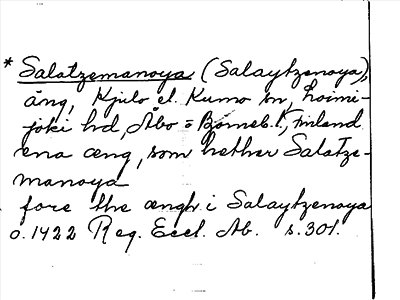 * Salatzemanoya (Salaytzenoya),
äng, Kjulo el. Kumo sn, Loimi-
joki hd, Åbo = Björneb. l., Finland.
ena æng, som hether Salatze-
manoya
fore the ængh i Salaytzenoya
o. 1422 Reg. Eccl. Ab. s. 301.